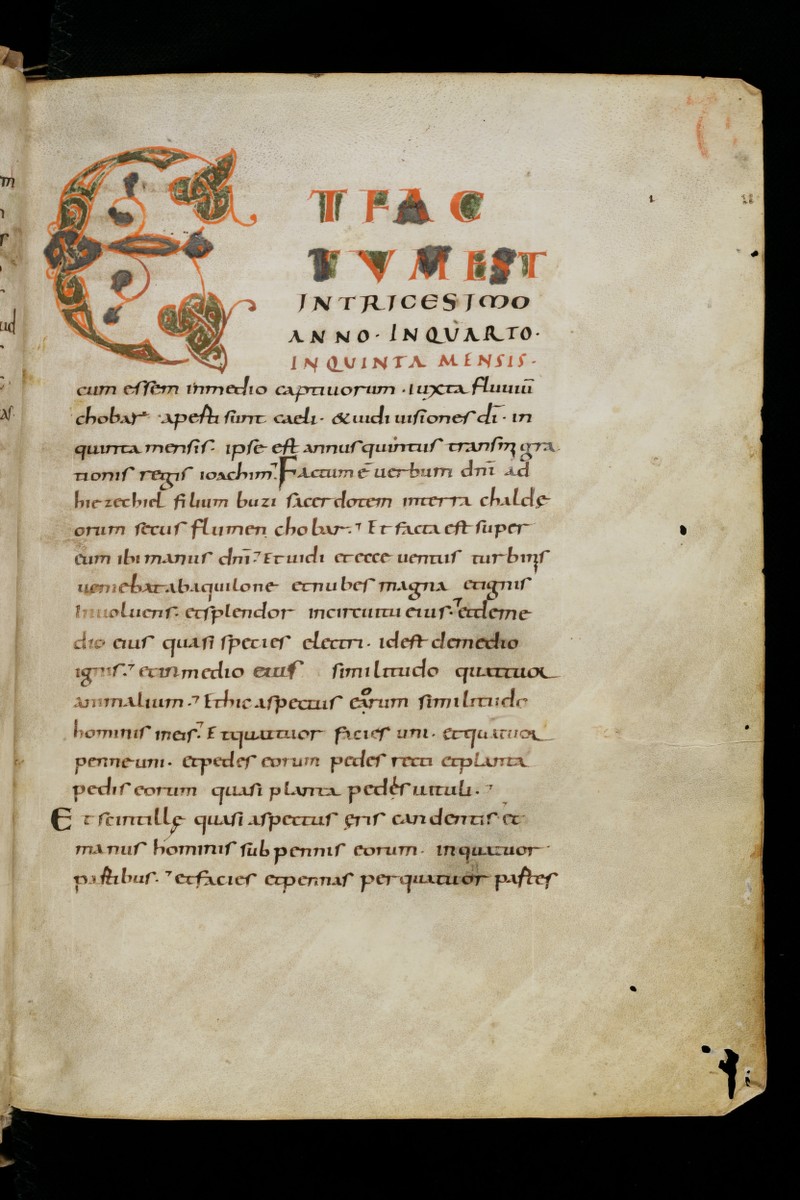 ET FAC
TVM EST
INTRICESIMO
ANNO · INQVARTO ·
INQUINTA MENSIS ·
cum essem inmedio captiuorum · iuxta fluuiū
chobar · aperti sunt caeli · &uidi uisiones dī · in
quinta mensis · ipse est annus quintus transm gra
tionis regis ioachim · Factum ē uerbum dnī ad
hiezechiel filium buzi sacerdotem interra chaldę
orum secus flumen chobar · Et facta est super
eum ibi manus dnī · Et uidi et ecce uentus turbinis
ueniebat abaquilone et nubes magna et ignis
Inuoluens · et splendor incircuitu eius · et deme
dio eius quasi species electri · id est demedio
ignis · et inmedio eius similitudo quattuor
animalium · Et hic aspectus eorum similitudo
hominis ineis · Et quattuor facies uni · et quattuor
penne uni · et pedes eorum pedes recti et planta
pedis eorum quasi planta pedes uituli ·
Et scintillę quasi aspectus ęris candentis et
manus hominis sub pennis eorum · inquattuor
partibus · et facies et pennas per quatuor partes